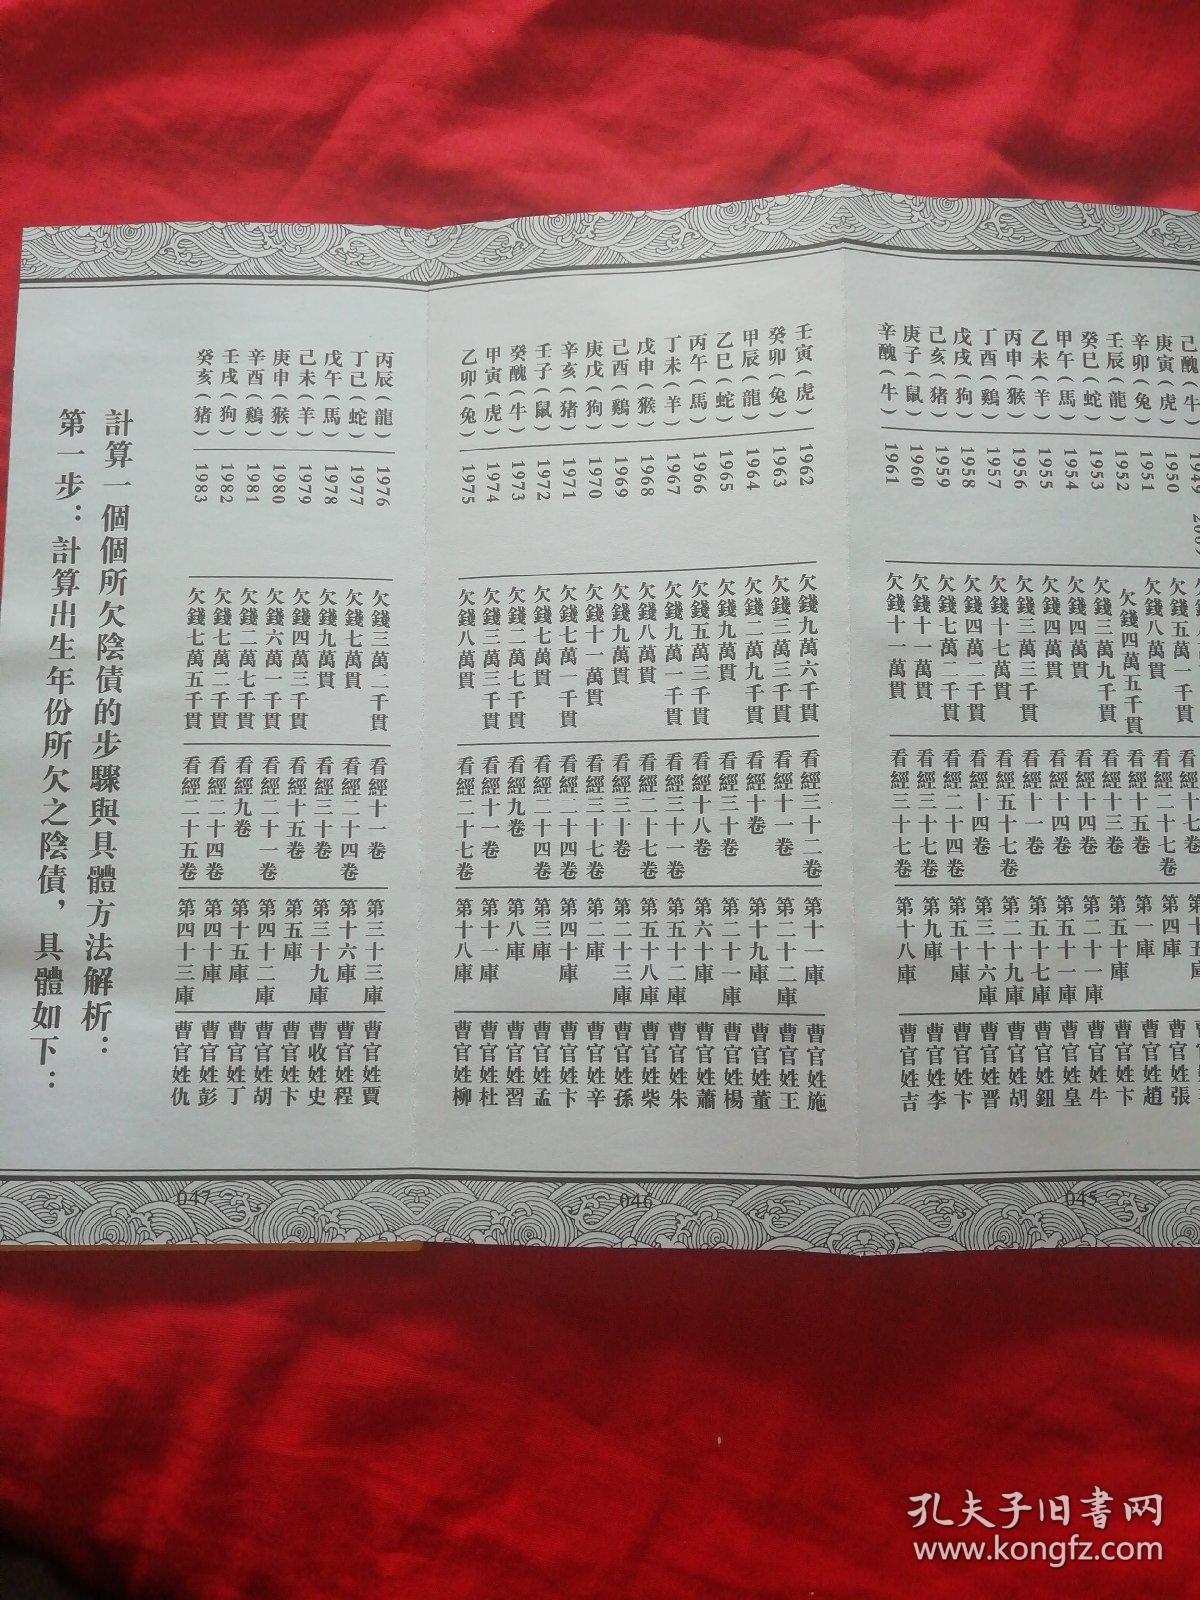 己醜(牛)
庚寅(虎) 1950 欠錢五萬一千貫 看經十七卷
辛卯(兔) 1951 欠錢八萬貫 看經二十七卷 第四庫 曹官姓張
壬辰(龍) 1952 欠錢四萬五千貫 看經十五卷 第一庫 曹官姓趙
癸巳(蛇) 1953 欠錢三萬九千貫 看經十三卷 第五十庫 曹官姓卞
甲午(馬) 1954 欠錢四萬貫 看經十四卷 第二十一庫 曹官姓牛
乙未(羊) 1955 欠錢四萬貫 看經十四卷 第五十一庫 曹官姓皇
丙申(猴) 1956 欠錢三萬三千貫 看經十一卷 第五十七庫 曹官姓鈕
丁酉(鷄) 1957 欠錢十七萬貫 看經五十七卷 第二十九庫 曹官姓胡
戊戌(狗) 1958 欠錢四萬二千貫 看經十四卷 第三十六庫 曹官姓晋
己亥(猪) 1959 欠錢七萬二千貫 看經二十四卷 第五十庫 曹官姓卞
庚子(鼠) 1960 欠錢十一萬貫 看經三十七卷 第九庫 曹官姓李
辛醜(牛) 1961 欠錢十一萬貫 看經三十七卷 第十八庫 曹官姓吉
045
壬寅(虎) 1962 欠錢九萬六千貫 看經三十二卷 第十一庫 曹官姓施
癸卯(兔) 1963 欠錢三萬三千貫 看經十一卷 第二十二庫 曹官姓王
甲辰(龍) 1964 欠錢二萬九千貫 看經十卷 第十九庫 曹官姓董
乙巳(蛇) 1965 欠錢九萬貫 看經三十卷 第二十一庫 曹官姓楊
丙午(馬) 1966 欠錢五萬三千貫 看經十八卷 第六十庫 曹官姓蕭
丁未(羊) 1967 欠錢九萬一千貫 看經三十一卷 第五十二庫 曹官姓朱
戊申(猴) 1968 欠錢八萬貫 看經二十七卷 第五十八庫 曹官姓柴
己酉(鷄) 1969 欠錢九萬貫 看經三十卷 第二十三庫 曹官姓孫
庚戌(狗) 1970 欠錢十一萬貫 看經三十七卷 第二庫 曹官姓辛
辛亥(猪) 1971 欠錢七萬一千貫 看經二十四卷 第四十庫 曹官姓卞
壬子(鼠) 1972 欠錢七萬貫 看經二十四卷 第三庫 曹官姓孟
癸醜(牛) 1973 欠錢二萬七千貫 看經九卷 第八庫 曹官姓習
甲寅(虎) 1974 欠錢三萬三千貫 看經十一卷 第十一庫 曹官姓杜
乙卯(兔) 1975 欠錢八萬貫 看經二十七卷 第十八庫 曹官姓柳
046
丙辰(龍) 1976 欠錢三萬二千貫 看經十一卷 第三十三庫 曹官姓賈
丁己(蛇) 1977 欠錢七萬貫 看經二十四卷 第十六庫 曹官姓程
戊午(馬) 1978 欠錢九萬貫 看經三十卷 第三十九庫 曹收姓史
己未(羊) 1979 欠錢四萬三千貫 看經十五卷 第五庫 曹官姓卞
庚申(猴) 1980 欠錢六萬一千貫 看經二十一卷 第四十二庫 曹官姓胡
辛酉(鷄) 1981 欠錢二萬七千貫 看經九卷 第十五庫 曹官姓丁
壬戌(狗) 1982 欠錢七萬二千貫 看經二十四卷 第四十庫 曹官姓彭
癸亥(猪) 1983 欠錢七萬五千貫 看經二十五卷 第四十三庫 曹官姓仇
計算一個個所欠陰債的步驟與具體方法解析：
第一步：計算出生年份所欠之陰債，具體如下：
047
孔夫子旧書网
www.kongfz.com